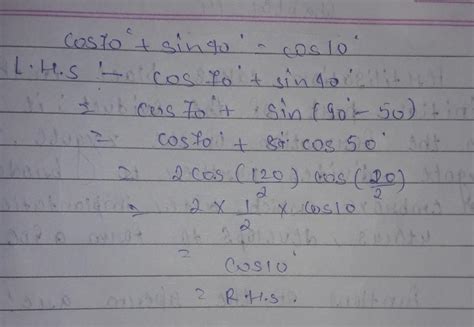 cos70° + sin40° = cos10°
L.H.S - cos 70° + sin40°
= cos70° + sin (90° - 50)
= cos70° + cos 50°
= 2cos (120/2) cos (20/2)
= 2 × 1/2 × cos10
= cos10°
= R.H.S.